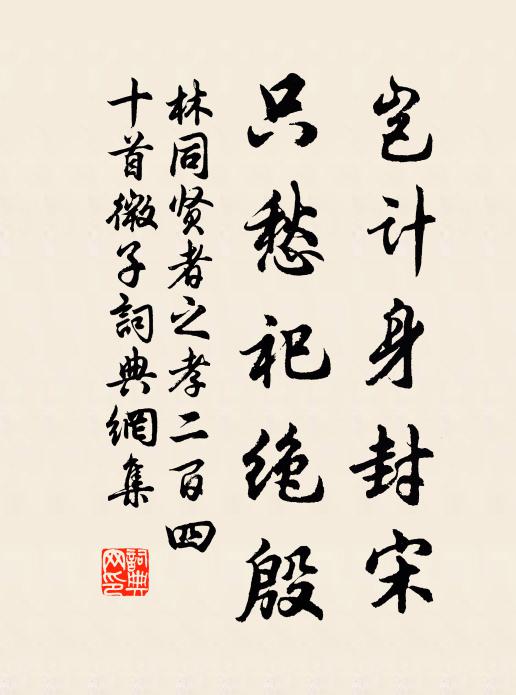 岂计身封宋
只愁祀绝殷
林同贤者之孝二百四
十首微子詞典網集
詞典
网印